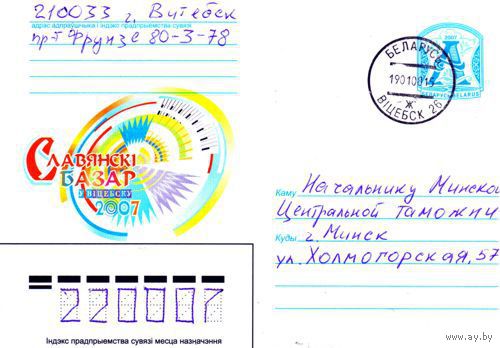 210033 г. Витебск
адрас адпраўшчыка і індэкс прадпрыемства сувязі
пр-т Фрунзе 80-3-78
СЛАВЯНСКІ
БАЗАР
У ВІЦЕБСКУ
2007
БЕЛАРУСЬ
ВІЦЕБСК 26
Ж
2007
БЕЛАРУСЬ BELARUS
Каму Начальнику Минской
Центральной таможни
Куды г. Минск
ул. Холмогорская, 57
220007
Індэкс прадпрыемства сувязі месца назначэння
www.ay.by